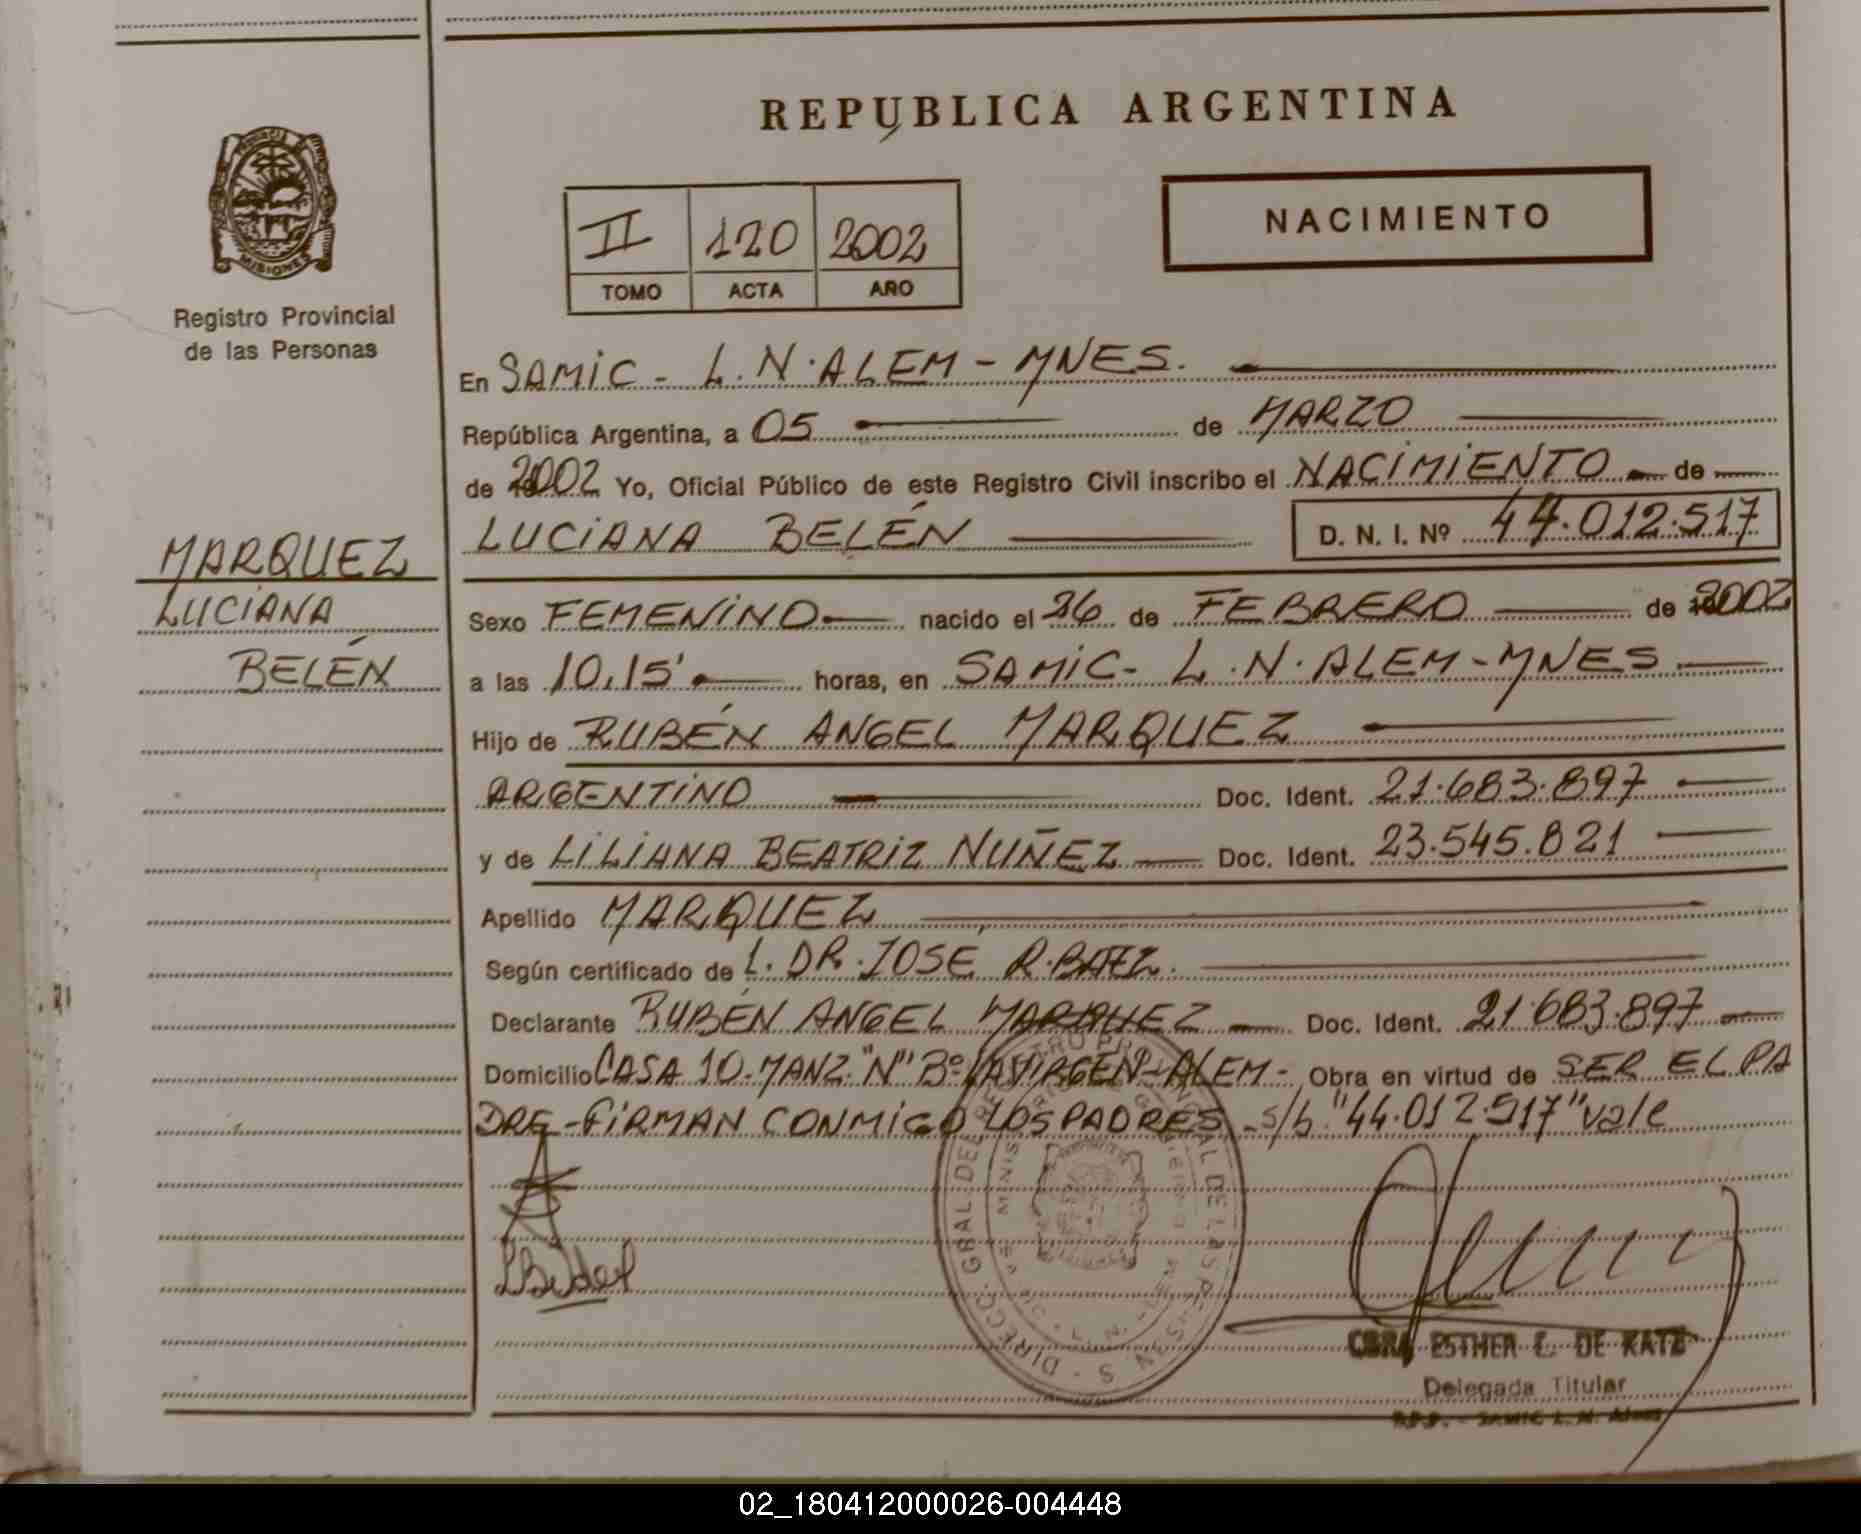 REPUBLICA ARGENTINA
NACIMIENTO
II 120 2002
TOMO ACTA AÑO
MISIONES
Registro Provincial
de las Personas
En SAMIC - L.N. ALEM - MNES.
República Argentina, a 05 de MARZO
de 2002 Yo, Oficial Público de este Registro Civil inscribo el NACIMIENTO de
LUCIANA BELÉN D. N. I. Nº 44.012.517
MARQUEZ
LUCIANA
BELÉN
Sexo FEMENINO nacido el 26 de FEBRERO de 2002
a las 10,15' horas, en SAMIC - L.N. ALEM - MNES
Hijo de RUBÉN ANGEL MARQUEZ
ARGENTINO Doc. Ident. 21.683.897
y de LILIANA BEATRIZ NUÑEZ Doc. Ident. 23.545.821
Apellido MARQUEZ
Según certificado de L. DR. JOSE R. BAEZ.
Declarante RUBÉN ANGEL MARQUEZ Doc. Ident. 21.683.897
Domicilio CASA 10. MANZ. "N" Bº LA VIRGEN - ALEM - Obra en virtud de SER EL PA
DRE - FIRMAN CONMIGO LOS PADRES - s/b "44.012.517" vale
DIRECC. GRAL. DEL REGISTRO PROVINCIAL DE LAS PERSONAS
ESTHER E. DE KATZ
Delegada Titular
R.P.P. - SAMIC L. N. Alem
02_180412000026-004448